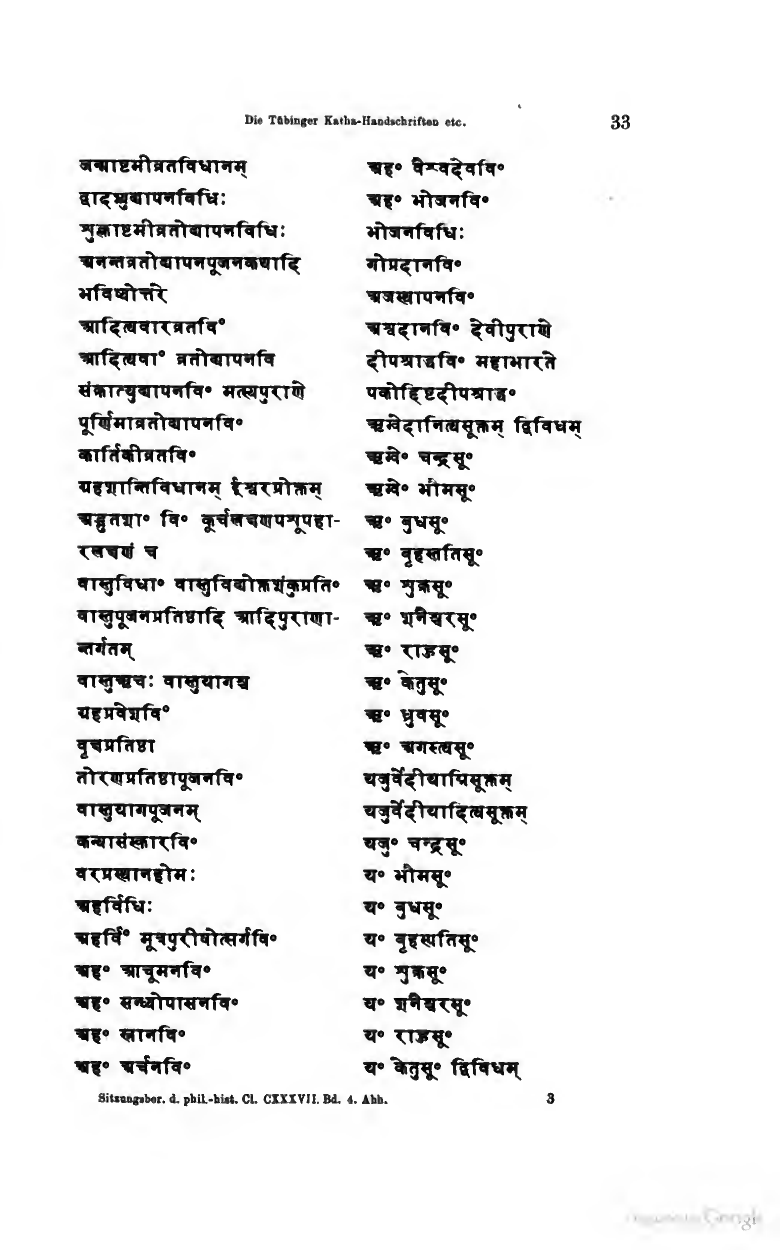 Die Tübinger Kaṭha-Handschriften etc. 33
जन्माष्टमीव्रतविधानम्
द्वादश्युद्यापनविधिः
शुक्लाष्टमीव्रतोद्यापनविधिः
अनन्तव्रतोद्यापनपूजनकथादि
भविष्योत्तरे
आदित्यवारव्रतवि°
आदित्यवा° व्रतोद्यापनवि
संक्रान्त्युद्यापनवि° मत्स्यपुराणे
पूर्णिमाव्रतोद्यापनवि°
कार्तिकीव्रतवि°
ग्रहशान्तिविधानम् ईश्वरप्रोक्तम्
अद्भुतशा° वि° कूर्चलक्षणपशूपहा-
रलक्षणं च
वास्तुविधा° वास्तुविद्योक्तशंकुप्रति°
वास्तुपूजनप्रतिष्ठादि आदिपुराणा-
न्तर्गतम्
वास्तुऋचः वास्तुयागश्च
ग्रहप्रवेशवि°
वृक्षप्रतिष्ठा
तोरणप्रतिष्ठापूजनवि°
वास्तुयागपूजनम्
कन्यासंस्कारवि°
वरप्रस्थानहोमः
अहर्विधिः
अहर्वि° मूत्रपुरीषोत्सर्गवि°
अह° आचमनवि°
अह° सन्ध्योपासनवि°
अह° स्नानवि°
अह° अर्चनवि°
अह° वैश्वदेववि°
अह° भोजनवि°
भोजनविधिः
गोप्रदानवि°
अजस्थापनवि°
अश्वदानवि° देवीपुराणे
दीपश्राद्धवि° महाभारते
एकोद्दिष्टदीपश्राद्ध°
ऋग्वेदानित्यसूक्तम् द्विविधम्
ऋग्वे° चन्द्रसू°
ऋग्वे° भौमसू°
ऋ° बुधसू°
ऋ° बृहस्पतिसू°
ऋ° शुक्रसू°
ऋ° शनैश्चरसू°
ऋ° राहुसू°
ऋ° केतुसू°
ऋ° ध्रुवसू°
ऋ° अगस्त्यसू°
यजुर्वेदीयाग्निसूक्तम्
यजुर्वेदीयादित्यसूक्तम्
यजु° चन्द्रसू°
य° भौमसू°
य° बुधसू°
य° बृहस्पतिसू°
य° शुक्रसू°
य° शनैश्चरसू°
य° राहुसू°
य° केतुसू° द्विविधम्
Sitzungsber. d. phil.-hist. Cl. CXXXVII. Bd. 4. Abh. 3